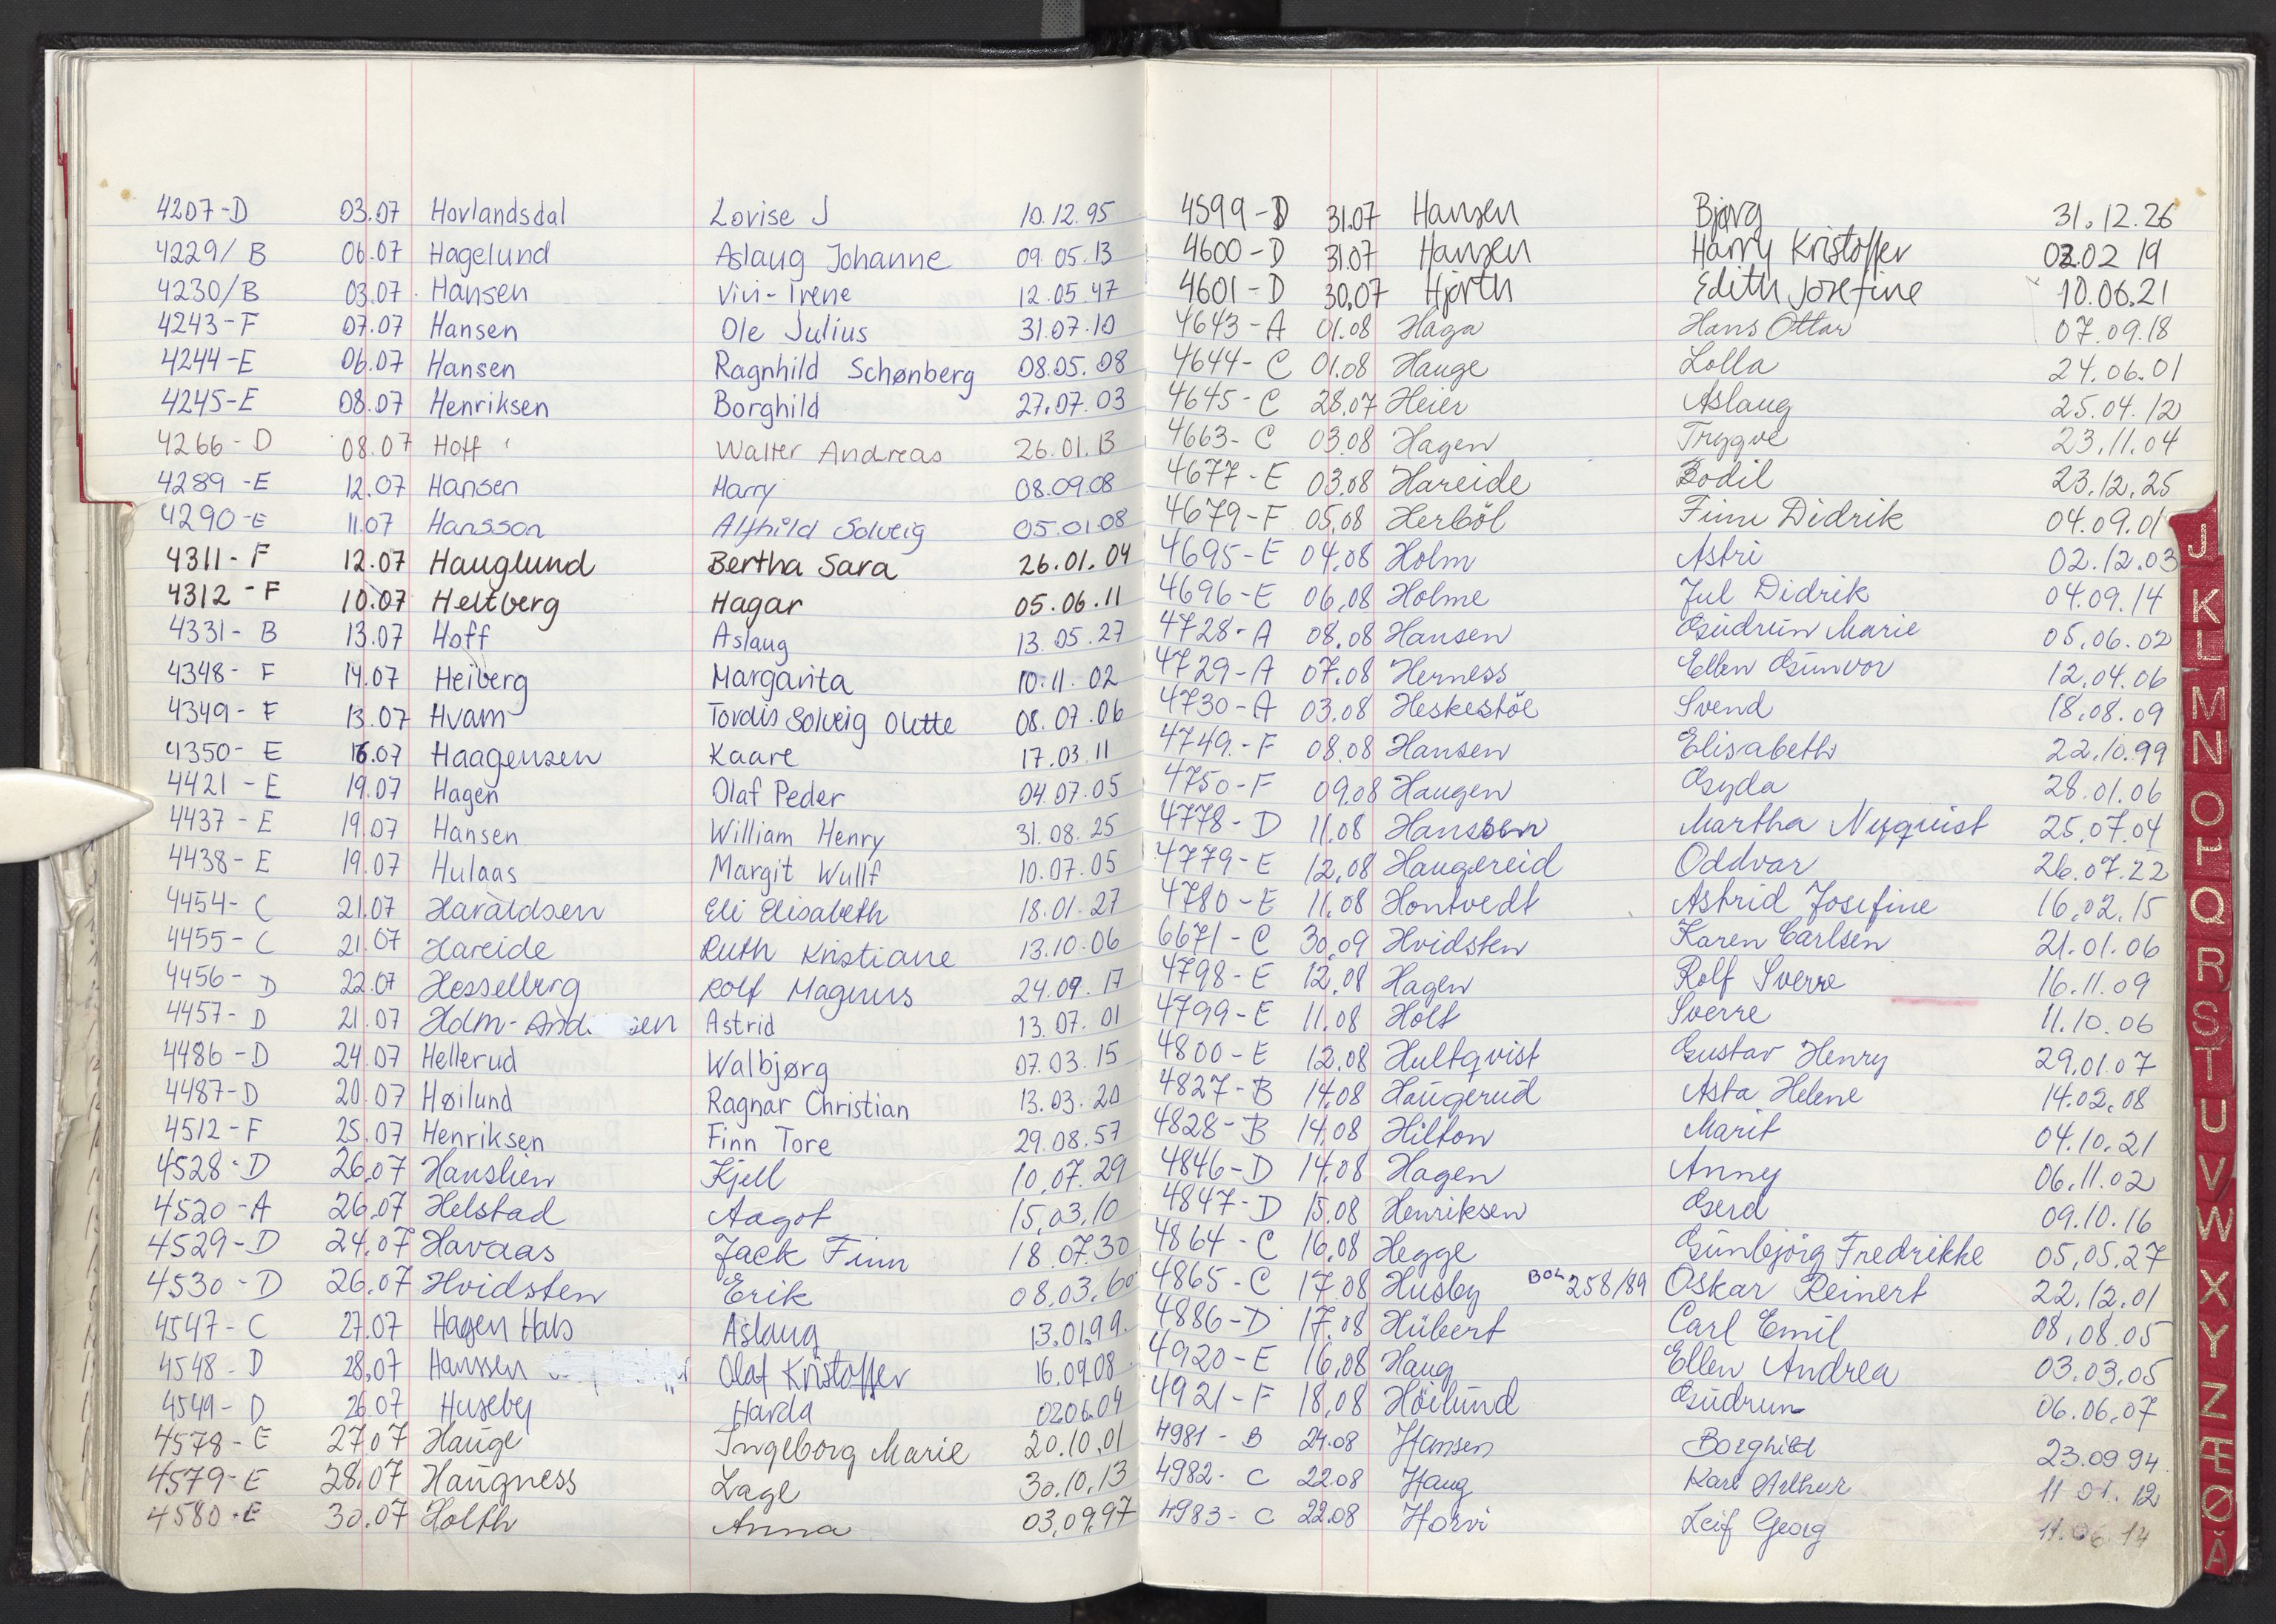 4207-D 03.07 Hovlandsdal Lovise J 10.12.95
4229/B 06.07 Hagelund Aslaug Johanne 09.05.13
4230/B 03.07 Hansen Vivi-Irene 12.05.47
4243-F 07.07 Hansen Ole Julius 31.07.10
4244-E 06.07 Hansen Ragnhild Schønberg 08.05.08
4245-E 08.07 Henriksen Borghild 27.07.03
4266-D 08.07 Hoff Walter Andreas 26.01.13
4289-E 12.07 Hansen Harry 08.09.08
4290-E 11.07 Hansson Alfhild Solveig 05.01.08
4311-F 12.07 Hauglund Bertha Sara 26.01.04
4312-F 10.07 Heltberg Hagar 05.06.11
4331-B 13.07 Hoff Aslaug 13.05.27
4348-F 14.07 Heiberg Margarita 10.11.02
4349-F 13.07 Hvam Tordis Solveig Olette 08.07.06
4350-E 16.07 Haagensen Kaare 17.03.11
4421-E 19.07 Hagen Olaf Peder 04.07.05
4437-E 19.07 Hansen William Henry 31.08.25
4438-E 19.07 Hulaas Margit Wullf 10.07.05
4454-C 21.07 Haraldsen Eli Elisabeth 18.01.27
4455-C 21.07 Hareide Ruth Kristiane 13.10.06
4456-D 22.07 Hesselberg Rolf Magnus 24.09.17
4457-D 21.07 Holm-And sen Astrid 13.07.01
4486-D 24.07 Hellerud Walbjørg 07.03.15
4487-D 20.07 Høilund Ragnar Christian 13.03.20
4512-F 25.07 Henriksen Finn Tore 29.08.57
4528-D 26.07 Hanslien Kjell 10.07.29
4520-A 26.07 Helstad Aagot 15.03.10
4529-D 24.07 Havaas Jack Finn 18.07.30
4530-D 26.07 Hvidsten Erik 08.03.60
4547-C 27.07 Hagen Hals Aslaug 13.01.99.
4548-D 28.07 Hanssen Olaf Kristoffer 16.09.08
4549-D 26.07 Huseby Harda 02.06.04
4578-E 27.07 Hauge Ingeborg Marie 20.10.01
4579-E 28.07 Haugness Lage 30.10.13
4580-E 30.07 Holth Anna 03.09.97
4599-D 31.07 Hansen Bjørg 31.12.26
4600-D 31.07 Hansen Harry Kristoffer 02.02 19
4601-D 30.07 Hjorth Edith Josefine 10.06.21
4643-A 01.08 Haga Hans Ottar 07.09.18
4644-C 01.08 Hauge Lolla 24.06.01
4645-C 28.07 Heier Aslaug 25.04.12
4663-C 03.08 Hagen Trygve 23.11.04
4677-E 03.08 Hareide Bodil 23.12.25
4679-F 05.08 Herböl Finn Didrik 04.09.01
4695-E 04.08 Holm Astri 02.12.03
4696-E 06.08 Holme Jul Didrik 04.09.14
4728-A 08.08 Hansen Gudrun Marie 05.06.02
4729-A 07.08 Herness Ellen Gunvor 12.04.06
4730-A 03.08 Heskestöl Svend 18.08.09
4749-F 08.08 Hansen Elisabeth 22.10.99
4750-F 09.08 Haugen Gyda 28.01.06
4778-D 11.08 Hanssen Martha Nyquist 25.07.04
4779-E 12.08 Haugereid Oddvar 26.07.22
4780-E 11.08 Hontvedt Astrid Josefine 16.02.15
6671-C 30.09 Hvidsten Karen Carlsen 21.01.06
4798-E 12.08 Hagen Rolf Sverre 16.11.09
4799-E 11.08 Holt Sverre 11.10.06
4800-E 12.08 Hultqvist Gustav Henry 29.01.07
4827-B 14.08 Haugerud Asta Helene 14.02.08
4828-B 14.08 Hilton Marit 04.10.21
4846-D 14.08 Hagen Anny 06.11.02
4847-D 15.08 Henriksen Gerd 09.10.16
4864-C 16.08 Hegge Gunbjörg Fredrikke 05.05.27
4865-C 17.08 Husby BOL 258/89 Oskar Reinert 22.12.01
4886-D 17.08 Hübert Carl Emil 08.08.05
4920-E 16.08 Haug Ellen Andrea 03.03.05
4921-F 18.08 Höilund Gudrun 06.06.07
4981-B 24.08 Hansen Borghild 23.09 94
4982-C 22.08 Haug Karl Arthur 11 01.12
4983-C 22.08 Horvi Leif Georg 11.06.14
J
K
L
M
N
O
P
Q
R
S
T
U
V
W
X
Y
Z
Æ
Ø
Å